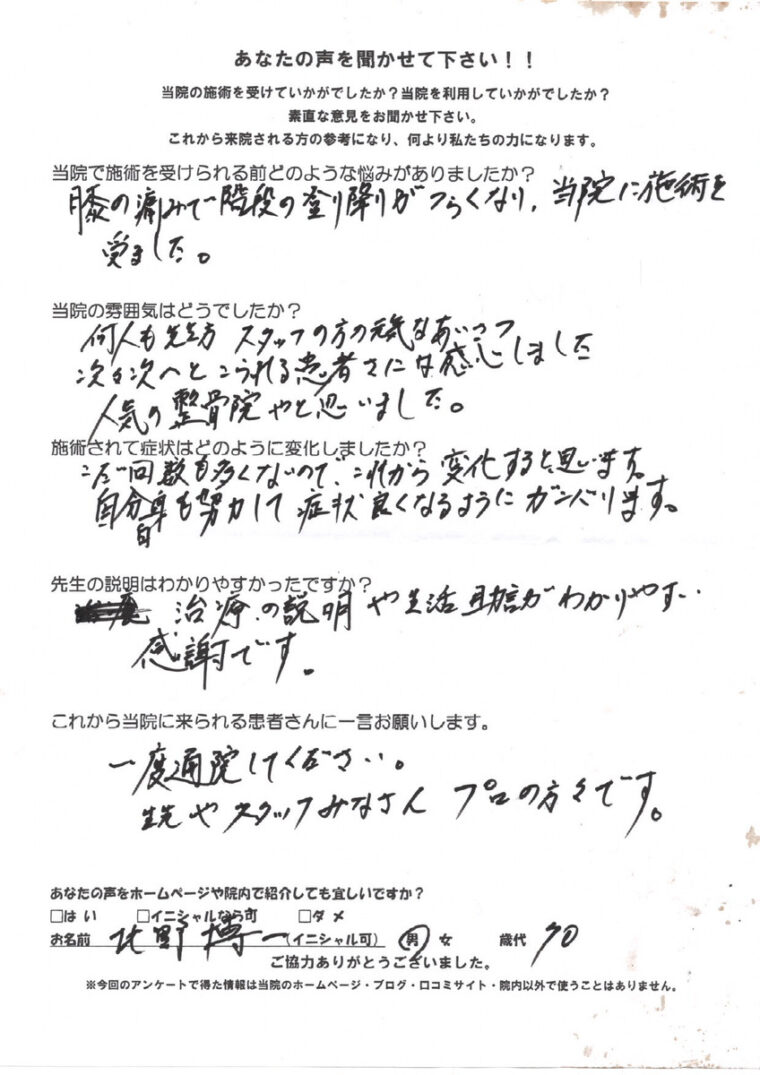 あなたの声を聞かせて下さい！！
当院の施術を受けていかがでしたか？当院を利用していかがでしたか？
素直な意見をお聞かせ下さい。
これから来院される方の参考になり、何より私たちの力になります。
当院で施術を受けられる前どのような悩みがありましたか？
膝の痛みで階段の登り降りがつらくなり、当院に施術を
受ました。
当院の雰囲気はどうでしたか？
何人も先生方 スタッフの方の元気なあいさつ
次々次へとこられる患者さに な感心しました
人気の整骨院やと思いました。
施術されて症状はどのように変化しましたか？
まだ回数も多くないので、これから変化すると思います。
自分自身も努力して症状良くなるようにガンバリます。
先生の説明はわかりやすかったですか？
治療の説明や生活助言がわかりやすい
感謝です。
これから当院に来られる患者さんに一言お願いします。
一度通院してください。
先生やスタッフみなさん プロの方々です。
あなたの声をホームページや院内で紹介しても宜しいですか？
□はい □イニシャルなら可 □ダメ
お名前 北野博一 (イニシャル可) 男 女 歳代 70
ご協力ありがとうございました。
※今回のアンケートで得た情報は当院のホームページ・ブログ・口コミサイト・院内以外で使うことはありません。